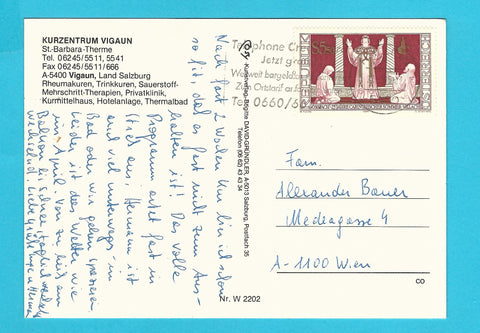 KURZENTRUM VIGAUN
St.-Barbara-Therme
Tel. 06245/5511, 5541
Fax 06245/5511/666
A-5400 Vigaun, Land Salzburg
Rheumakuren, Trinkkuren, Sauerstoff-
Mehrschritt-Therapien, Privatklinik,
Kurmittelhaus, Hotelanlage, Thermalbad
Nach fast 2 Wochen Kur bin ich schon
so fit, daß es fast nicht zum Aus-
halten ist! Das volle
Programm artet fast in
Streß aus. Hermann ist
auch viel unterwegs - im
Bad oder wir gehen spazieren
Leider ist das Wetter wie
im April. Von zu
Balkon bis schnee täglich
wechselnd. Liebe Grüße
Telephone
Jetzt
Weltweit bargeldl
Zum Ortstarif
Tel. 0660/
S5.50
Brigitte DAVID-GRÜNDLER, A-5013 Salzburg, Postfach 35
Telefon (06 62) 43 43 34
Nr. W 2202
Fam.
Alexander Bauer
Mediagasse 4
A-1100 Wien
CO